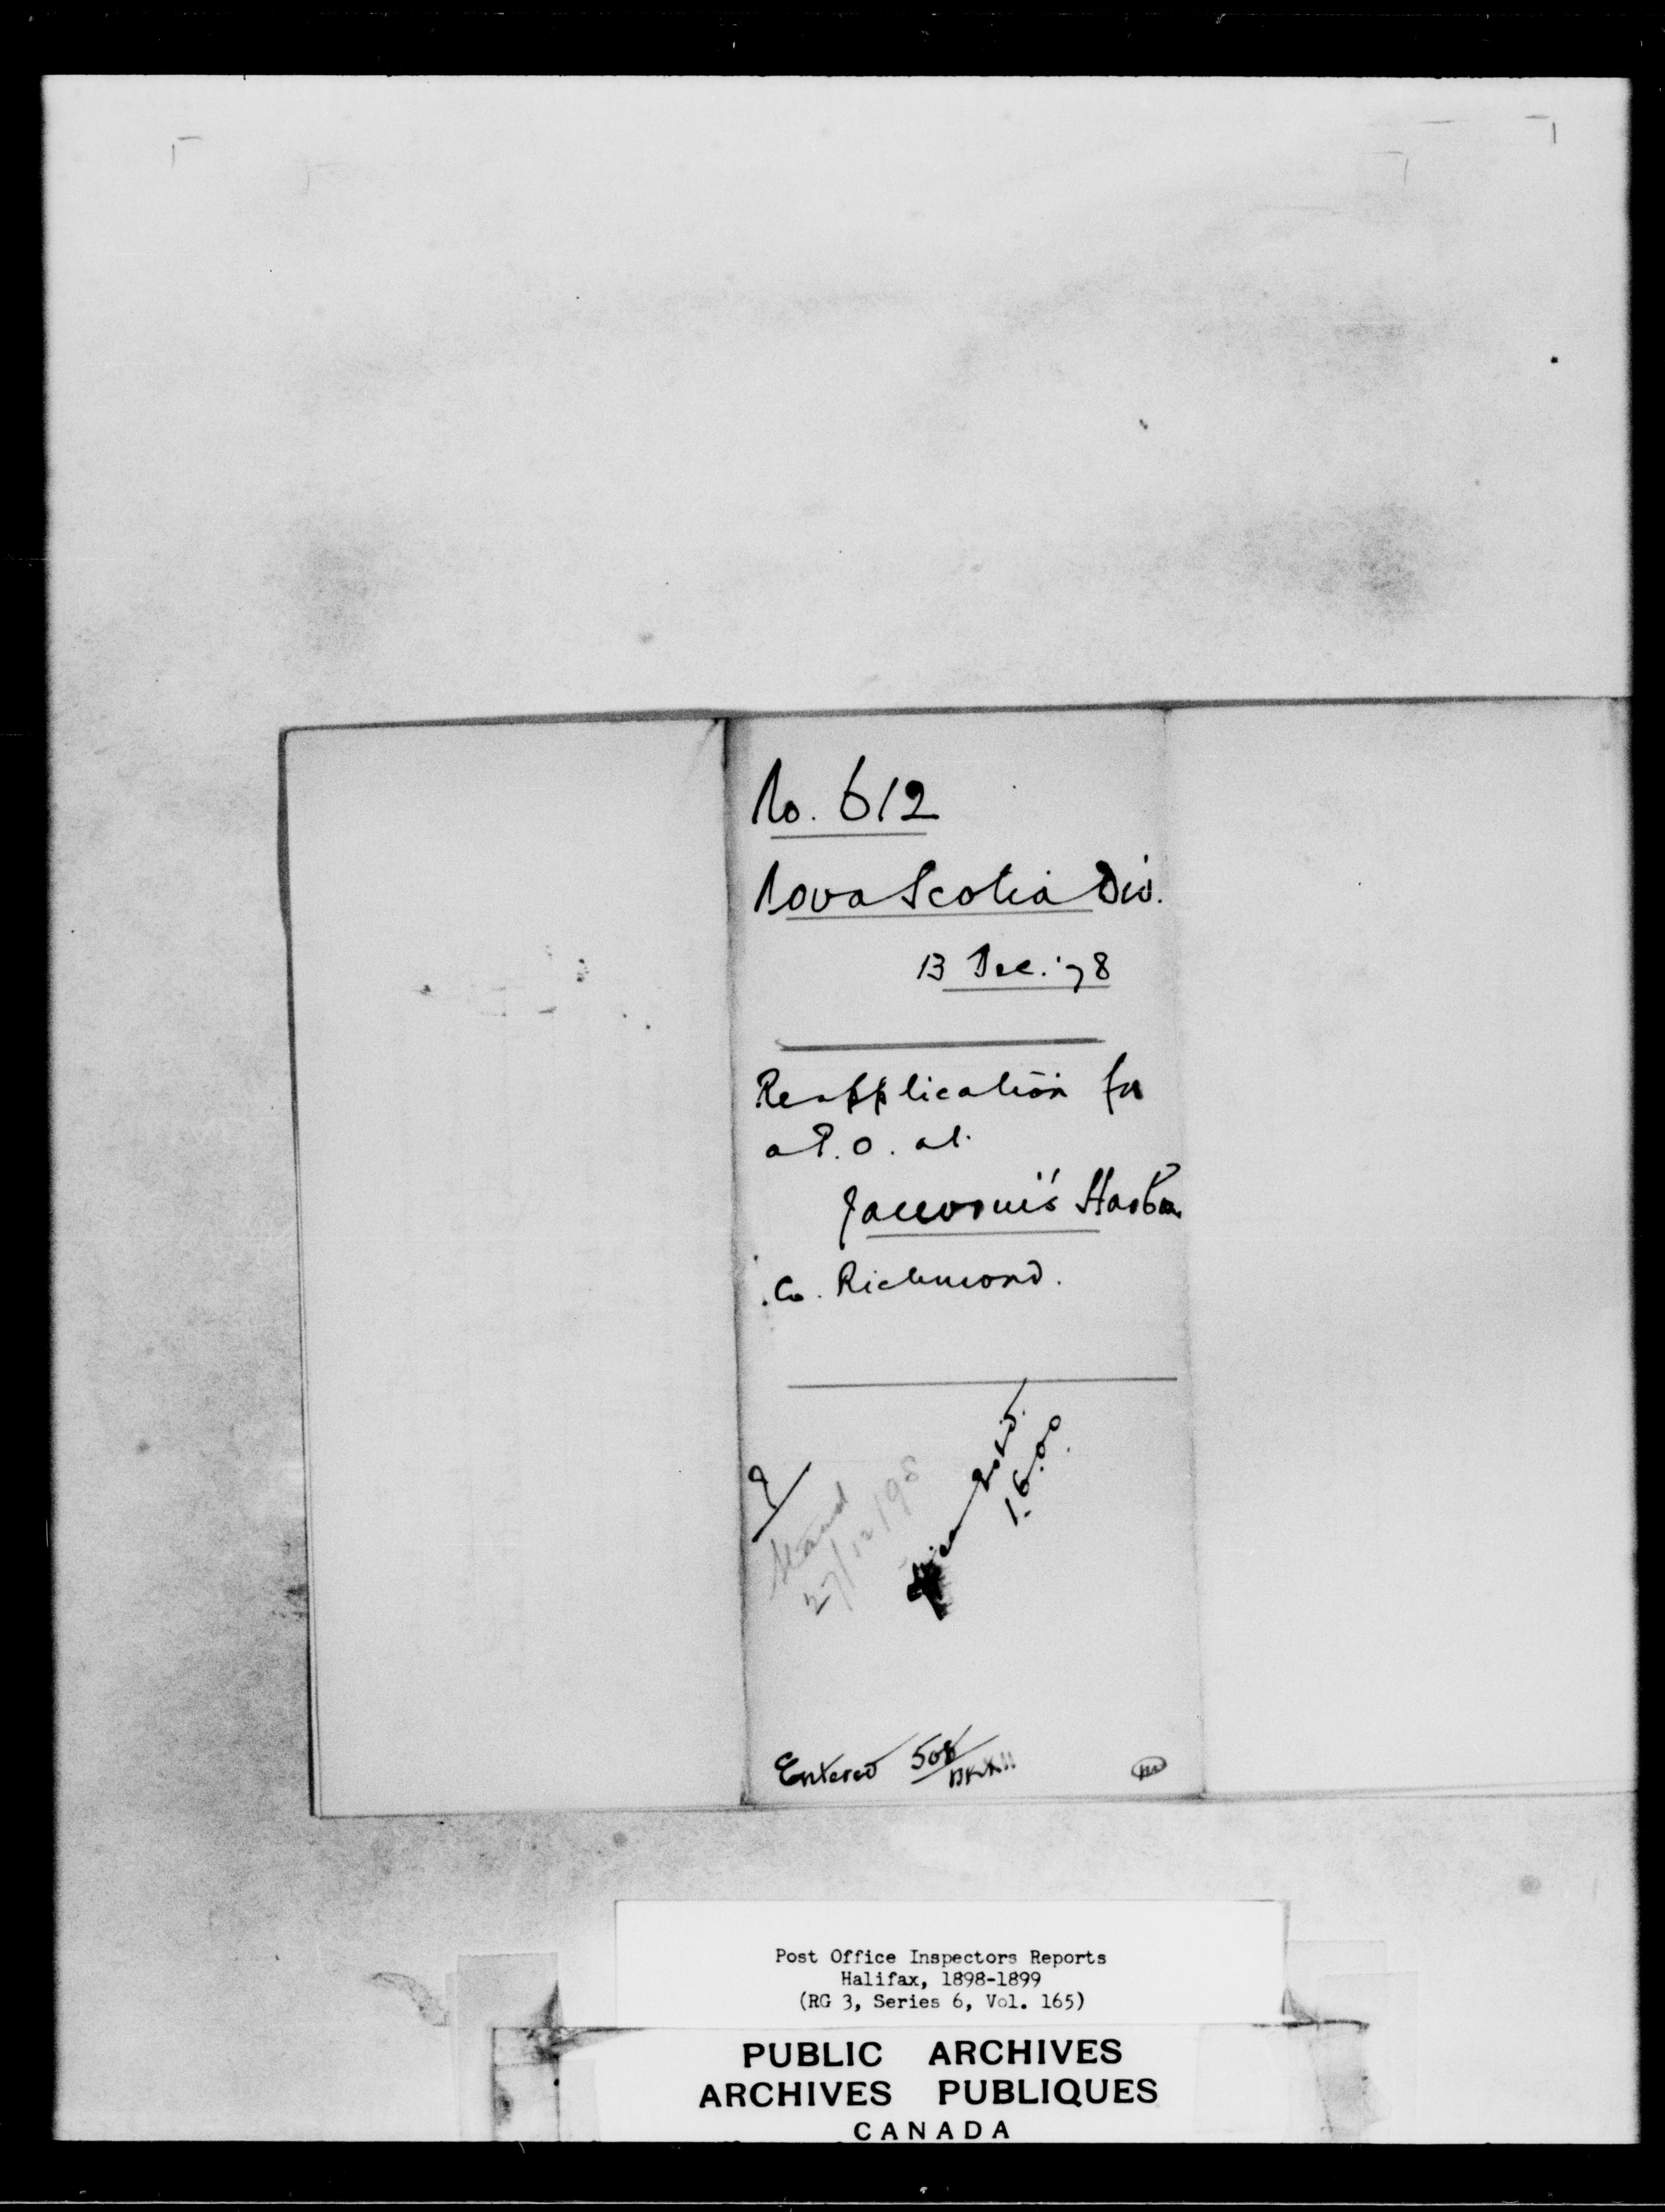 No. 612
Nova Scotia Div.
13 Dec. '98
Re application for
a P.O. at
Harbour
Co. Richmond.
Stand
27/12/98
16.00
Entered 508
Post Office Inspectors Reports
Halifax, 1898-1899
(RG 3, Series 6, Vol. 165)
PUBLIC ARCHIVES
ARCHIVES PUBLIQUES
CANADA